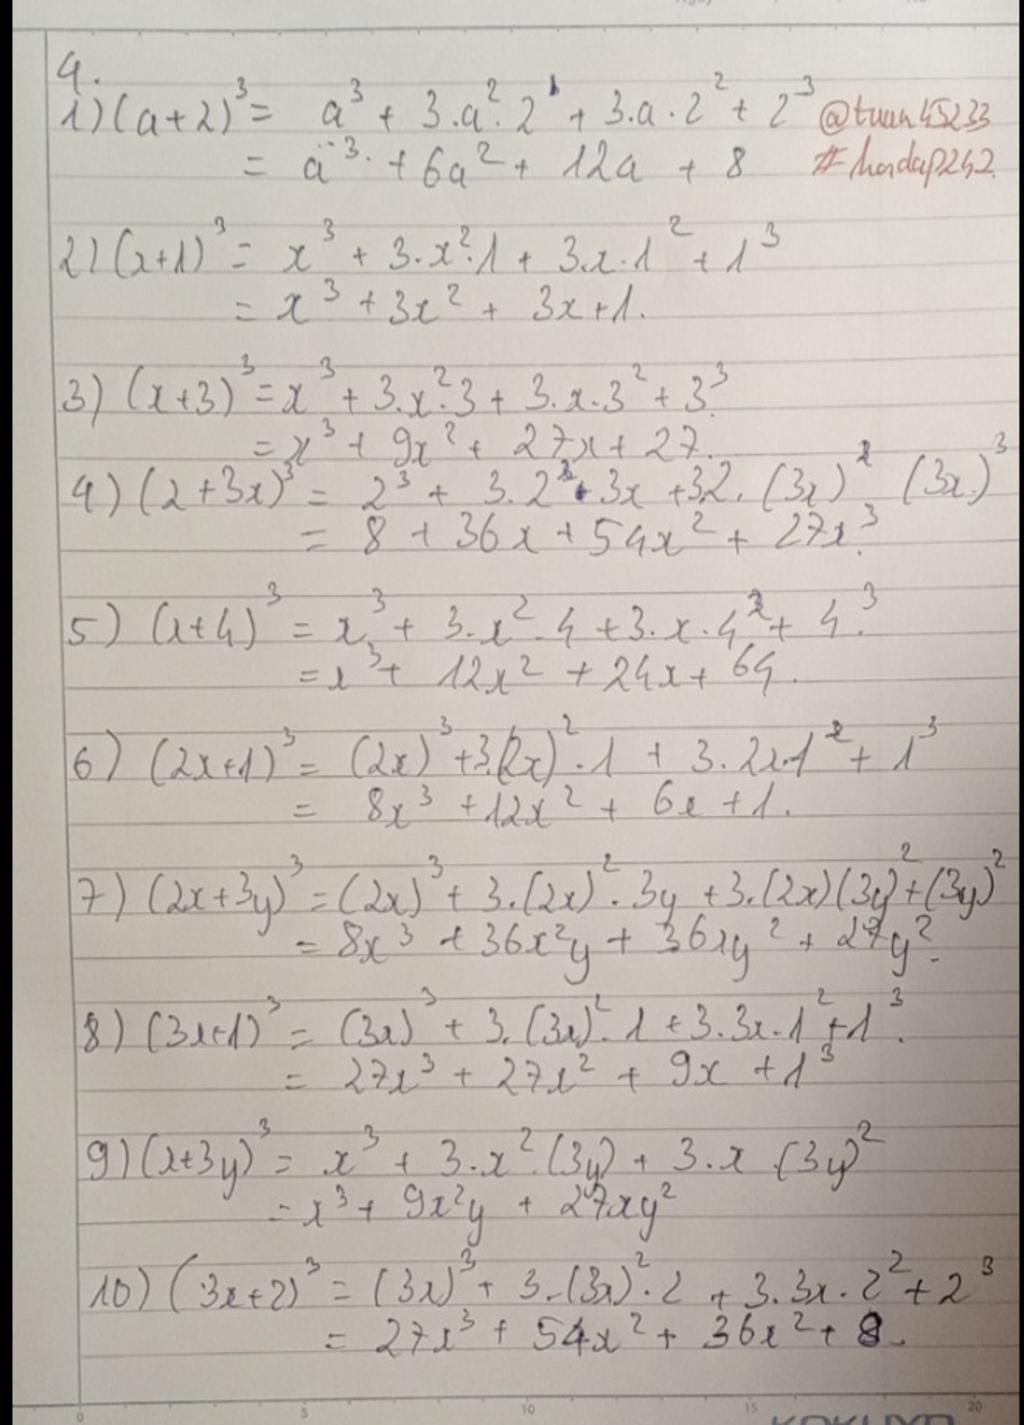 4.
1) (a+2)³ = a³ + 3.a².2¹ + 3.a.2² + 2³ @tuan45233
= a³ + 6a² + 12a + 8 #hoidap242.
2) (x+1)³ = x³ + 3.x².1 + 3.x.1² + 1³
= x³ + 3x² + 3x+1.
3) (x+3)³ = x³ + 3.x².3 + 3.x.3² + 3³.
= x³ + 9x² + 27x + 27.
4) (2+3x)³ = 2³ + 3.2².3x + 3.2.(3x)² (3x)³
= 8 + 36x + 54x² + 27x³.
5) (x+4)³ = x³ + 3.x².4 + 3.x.4² + 4³.
= x³ + 12x² + 24x + 64.
6) (2x+1)³ = (2x)³ + 3.(2x)².1 + 3.2x.1² + 1³
= 8x³ + 12x² + 6x + 1.
7) (2x+3y)³ = (2x)³ + 3.(2x)².3y + 3.(2x)(3y)² + (3y)²
= 8x³ + 36x²y + 36xy² + 27y².
8) (3x+1)³ = (3x)³ + 3.(3x)².1 + 3.3x.1² + 1³.
= 27x³ + 27x² + 9x + 1³
9) (x+3y)³ = x³ + 3.x².(3y) + 3.x.(3y)²
= x³ + 9x²y + 27xy²
10) (3x+2)³ = (3x)³ + 3.(3x)².2 + 3.3x.2² + 2³
= 27x³ + 54x² + 36x² + 8.
0 5 10 15 20